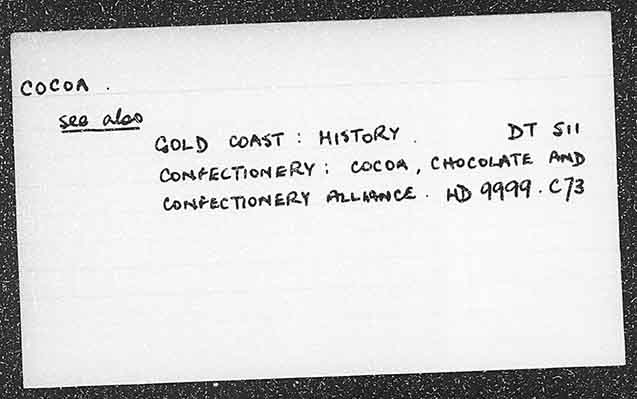 COCOA .
see also
GOLD COAST : HISTORY . DT 511
CONFECTIONERY : COCOA, CHOCOLATE AND
CONFECTIONERY ALLIANCE . HD 9999.C73